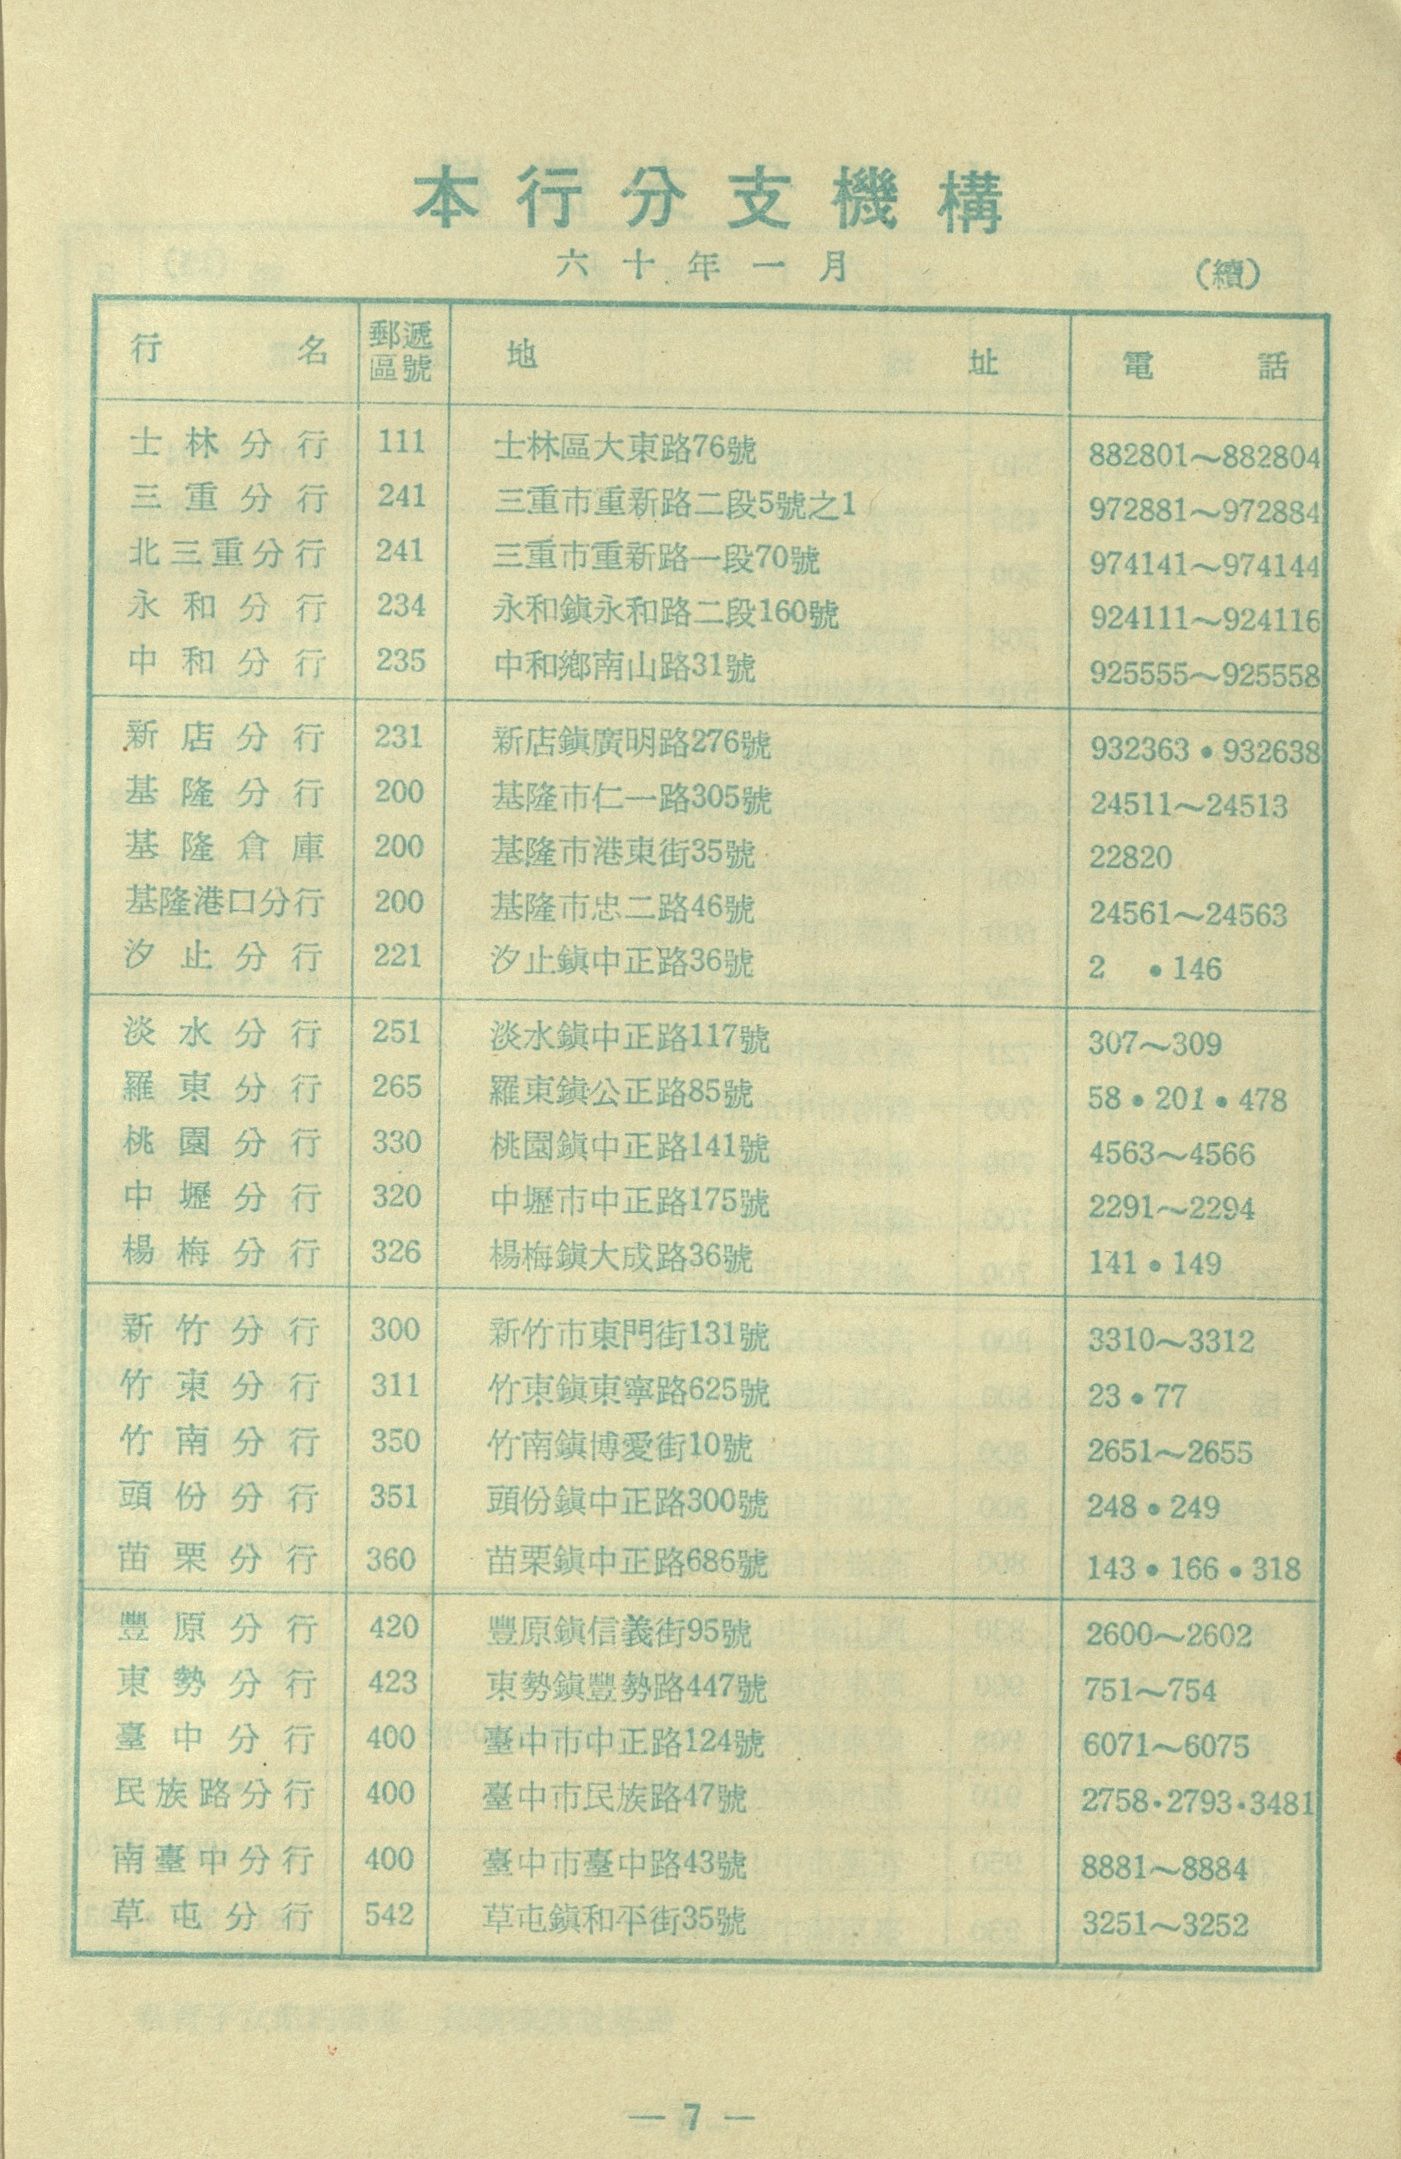 本行分支機構
六十年一月
(續)
行名 郵遞區號 地址 電話
士林分行 111 士林區大東路76號 882801～882804
三重分行 241 三重市重新路二段5號之1 972881～972884
北三重分行 241 三重市重新路一段70號 974141～974144
永和分行 234 永和鎮永和路二段160號 924111～924116
中和分行 235 中和鄉南山路31號 925555～925558
新店分行 231 新店鎮廣明路276號 932363•932638
基隆分行 200 基隆市仁一路305號 24511～24513
基隆倉庫 200 基隆市港東街35號 22820
基隆港口分行 200 基隆市忠二路46號 24561～24563
汐止分行 221 汐止鎮中正路36號 2 •146
淡水分行 251 淡水鎮中正路117號 307～309
羅東分行 265 羅東鎮公正路85號 58•201•478
桃園分行 330 桃園鎮中正路141號 4563～4566
中壢分行 320 中壢市中正路175號 2291～2294
楊梅分行 326 楊梅鎮大成路36號 141•149
新竹分行 300 新竹市東門街131號 3310～3312
竹東分行 311 竹東鎮東寧路625號 23•77
竹南分行 350 竹南鎮博愛街10號 2651～2655
頭份分行 351 頭份鎮中正路300號 248•249
苗栗分行 360 苗栗鎮中正路686號 143•166•318
豐原分行 420 豐原鎮信義街95號 2600～2602
東勢分行 423 東勢鎮豐勢路447號 751～754
臺中分行 400 臺中市中正路124號 6071～6075
民族路分行 400 臺中市民族路47號 2758•2793•3481
南臺中分行 400 臺中市臺中路43號 8881～8884
草屯分行 542 草屯鎮和平街35號 3251～3252
— 7 —